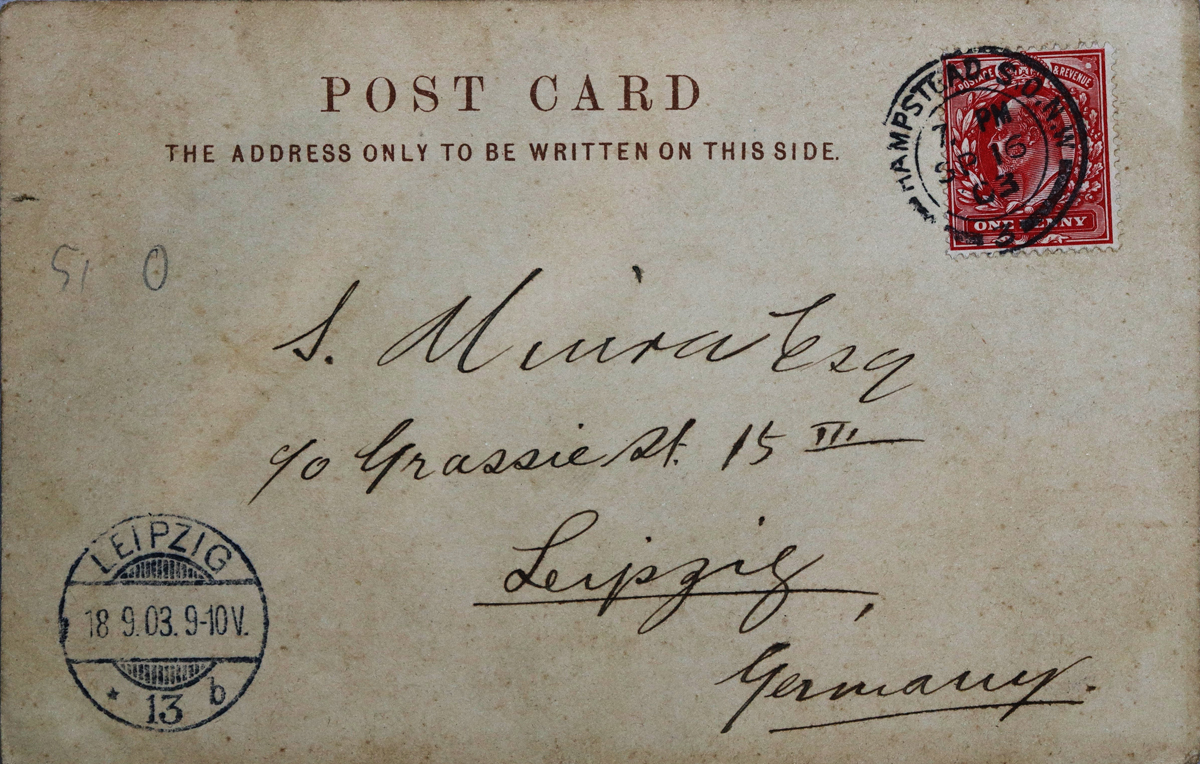 POST CARD
THE ADDRESS ONLY TO BE WRITTEN ON THIS SIDE.
HAMPSTEAD S.O.N.W
7 PM
SP 16
03
3
POSTAGE & REVENUE
ONE PENNY
51 0
S. Miura Esq
c/o Grassie St. 15 III
Leipzig,
Germany.
LEIPZIG
18 9.03. 9-10 V.
* 13 b